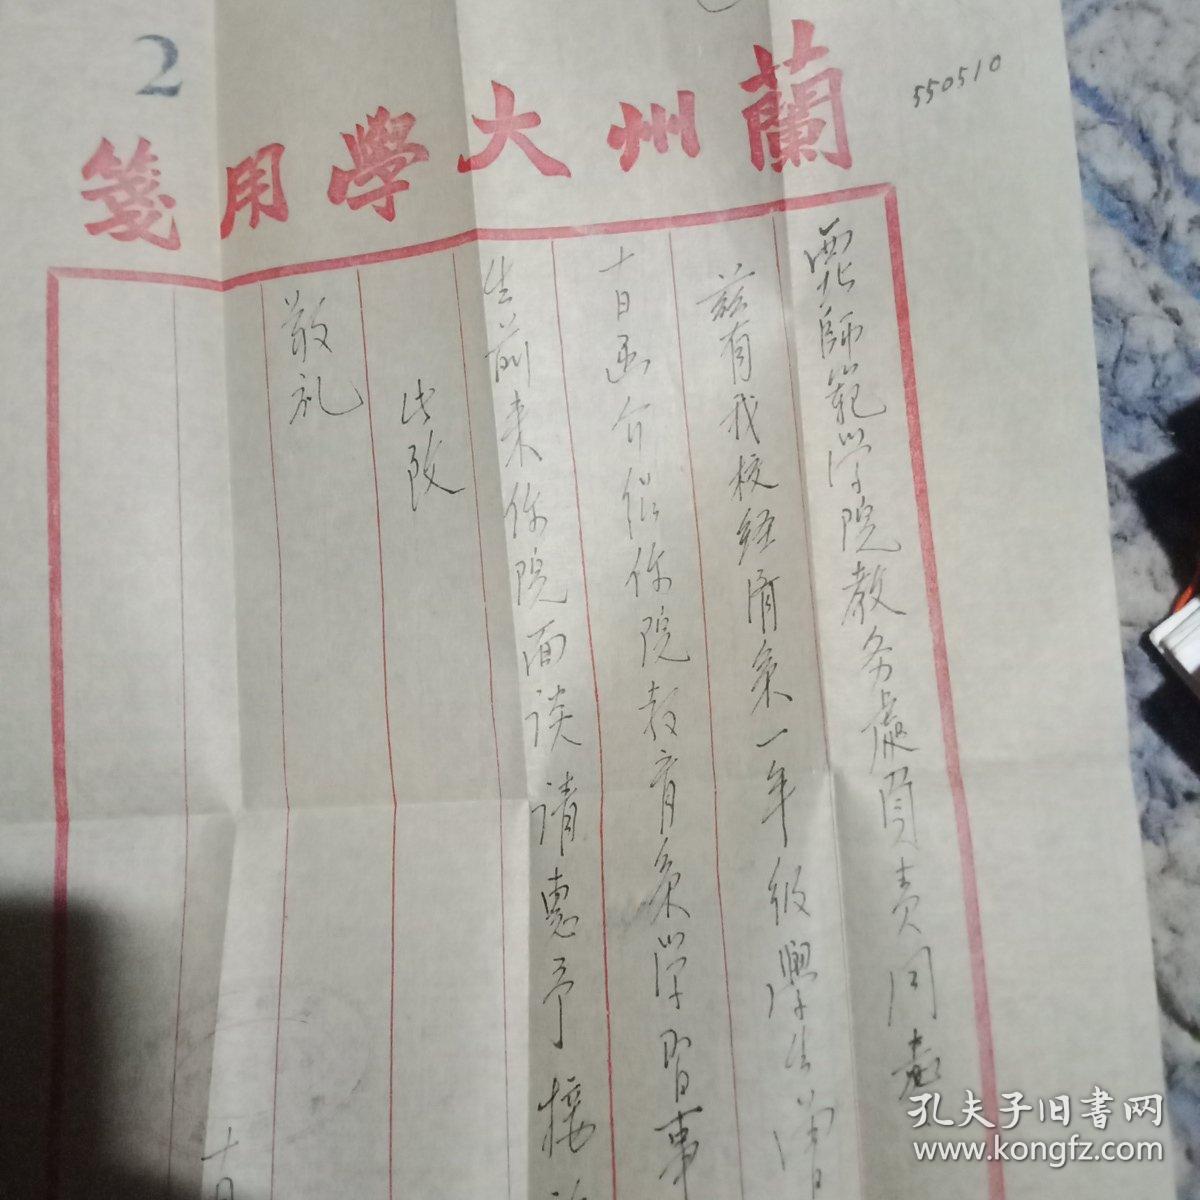 2
550510
蘭州大學用箋
西北師範学院教务處负责同志
兹有我校经济系一年级學生曾
十日函介绍你院教育系学習事
生前来你院面谈请惠予接
此致
敬礼
十月
孔夫子旧书网
www.kongfz.com